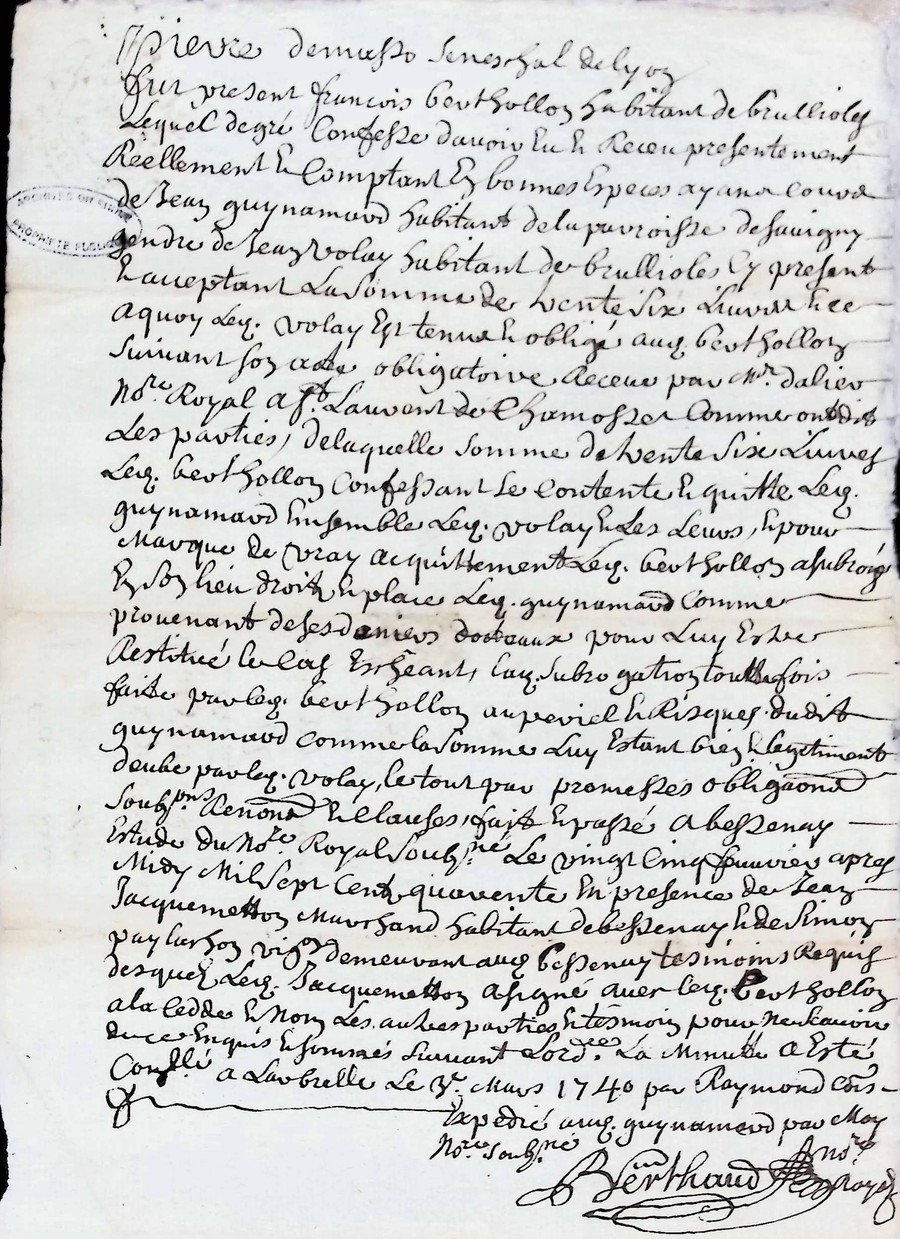 Pierre demasso seneschal de lyon
fut present françois berthollon habitant de brullioles
Lequel de gré Confesse davoir Eu et Receu presentement
Reellement et Comptant En bonnes Especes ayant cours
de Jean guynamard habitant de la parroisse de savigny
gendre de Jean volay habitant de brullioles Cy present
Et acceptant La somme de trente six Livres et ce
a quoy Leq. volay Est tenu et obligé auq. berthollon
suivant son acte obligatoire Receu par Mr. dalier
Nore. Royal a st. Laurent de Chamosset Comme ont dit
Les parties, de laquelle somme de trente six Livres
Leq. berthollon Confessant se Contente et quitte Leq.
guynamard Ensemble Leq. volay et Les Leurs, et pour
Marque de vray acquittement Leq. berthollon a subrogé
En son lieu droit et place Leq. guynamard Comme
provenant de ses deniers dotaux pour Luy Estre
Restitué le Cas Escheant, Laq. subrogation touttefois
faite par leq. berthollon au peril et Risques dudit
guynamard comme la somme Luy Estant bien et legitimemt
deube par leq. volay, le tout par promesses obligaons
soubspns Renonon Et Clauses, fait et passé a bessenay
Estude du Nore. Royal soubsné Le vingt Cinq fevrier apres
Midy Mil sept Cent quarente En presence de Jean
Jacquemetton Marchand habitant de bessenay et de Simon
paylachon vignon demeurant auq. bessenay tesmoins Requis
desquels Leq. Jacquemetton a signé avec leq. Berthollon
a la Cedde et Non Les autres parties et tesmoin pour ne scavoir
de ce Enquis et sommés suivant Lordce. La Minutte a Esté
Conllé a Larbrelle Le 3e. Mars 1740 par Raymond Coms
Expedié auq. guynamard par Moy
Nore. soubsné
Berthaud nore
Royal
ARCHIVES DU RHONE
PROPRIETE PUBLIQUE